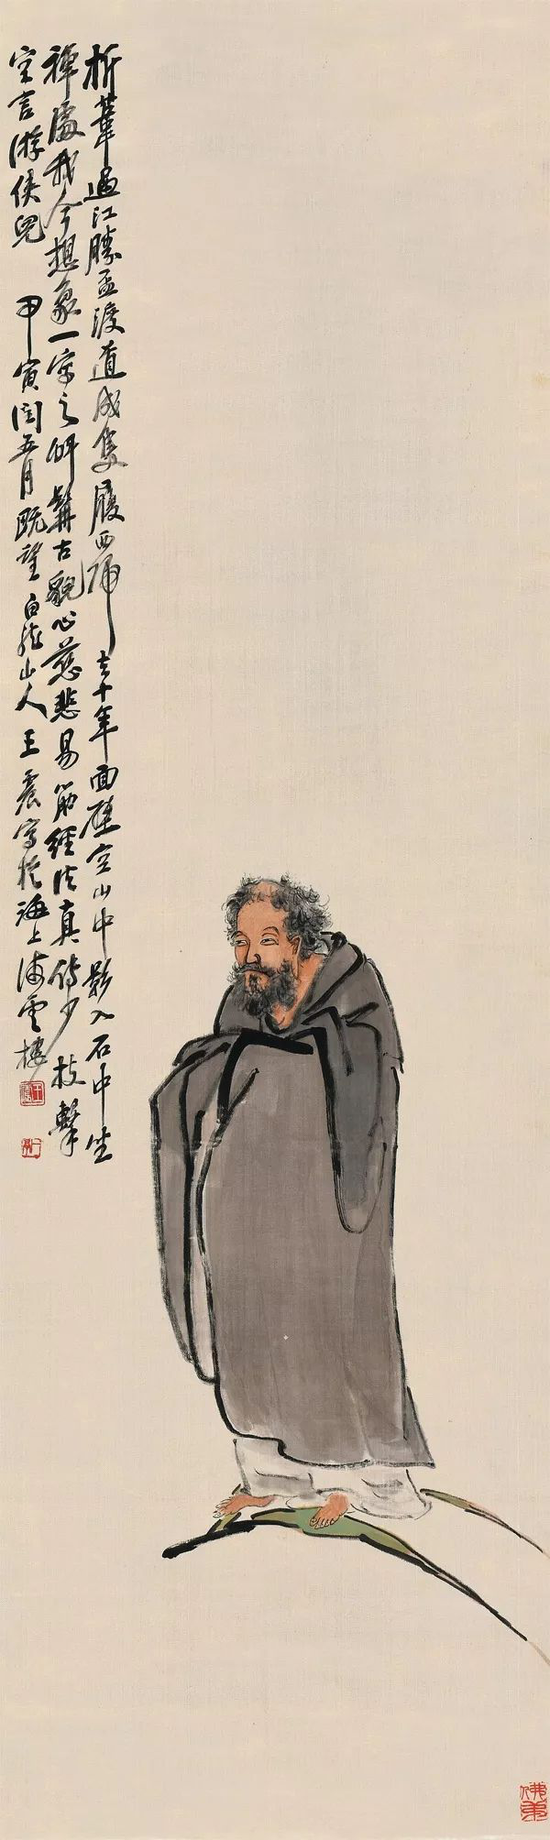 折葦過江勝盃渡道成隻履西歸去十年面壁空山中影入石中坐
禪處我今想象一寫之鬅古貌心慈悲易筋經法真傳少技擊
空言游俠兒 甲寅閏五月既望白龍山人王震寫於海上海雲樓
佛弟